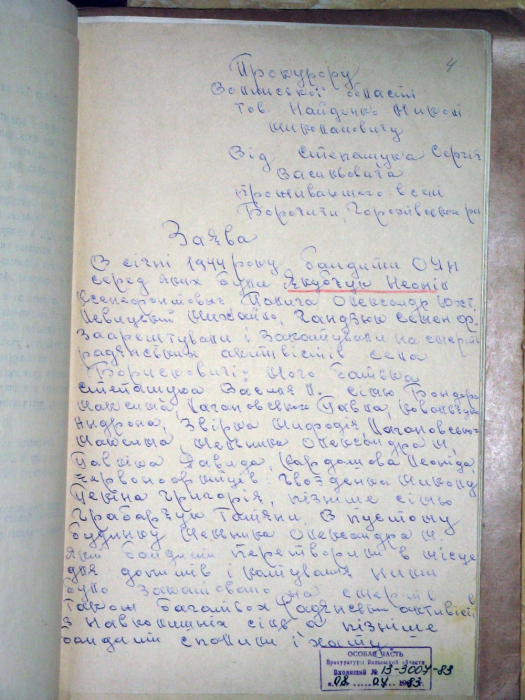 4
Прокурору
Волинської області
тов. Найденко Миколі
Миколайовичу
Від Степащука Сергія
Васильовича
проживаючого в селі
Борочичі, Горохівського р-н
Заява
В січні 1944 року бандити ОУН
серед яких були Якубчук Леонід
Ксенофонтович, Павига Олександр
Левицький Михайло, Гандзюк Семен Ф.
Заарештували і закатували на смерть
радянських активістів села
Борисковичі: мого батька
Степащука Василя П. сім'ю Бондара
Максима, Кагановська Павла, Ковальчука
Андрона, Звірка Мифодія
Максима Мельника Олександра М.
Павлика Давида, Кардашова Леоніда,
червоноармійців: Гвозденка Миколу
Григорія, пізніше сім'ю
Грабарчук Татяни. В пустому
будинку Мельника Олександра М.
який бандити перетворили в місце
для допитів і катування ними
було закатовано на смерть
також багатьох радянських активістів
з навколишніх сіл а пізніше
бандити спалили і хату.
ОСОБАЯ ЧАСТЬ
Прокуратуры Волынской области
Входящий № 13-3007-83